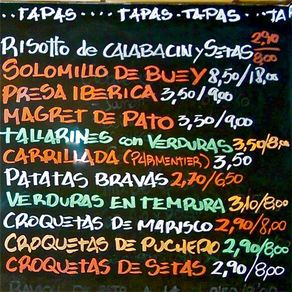 ...TAPAS... TAPAS-TAPAS ...TA
RISOTTO de CALABACIN y SETAS 2,90/8,00
SOLOMILLO DE BUEY 8,50/18,00
PRESA IBERICA 3,50/9,00
MAGRET DE PATO 3,50/9,00
TALLARINES con VERDURAS 3,50/8,00
CARRILLADA (PARMENTIER) 3,50
PATATAS BRAVAS 2,70/6,50
VERDURAS EN TEMPURA 3,10/8,00
CROQUETAS DE MARISCO 2,90/8,00
CROQUETAS DE PUCHERO 2,90/8,00
CROQUETAS DE SETAS 2,90/8,00